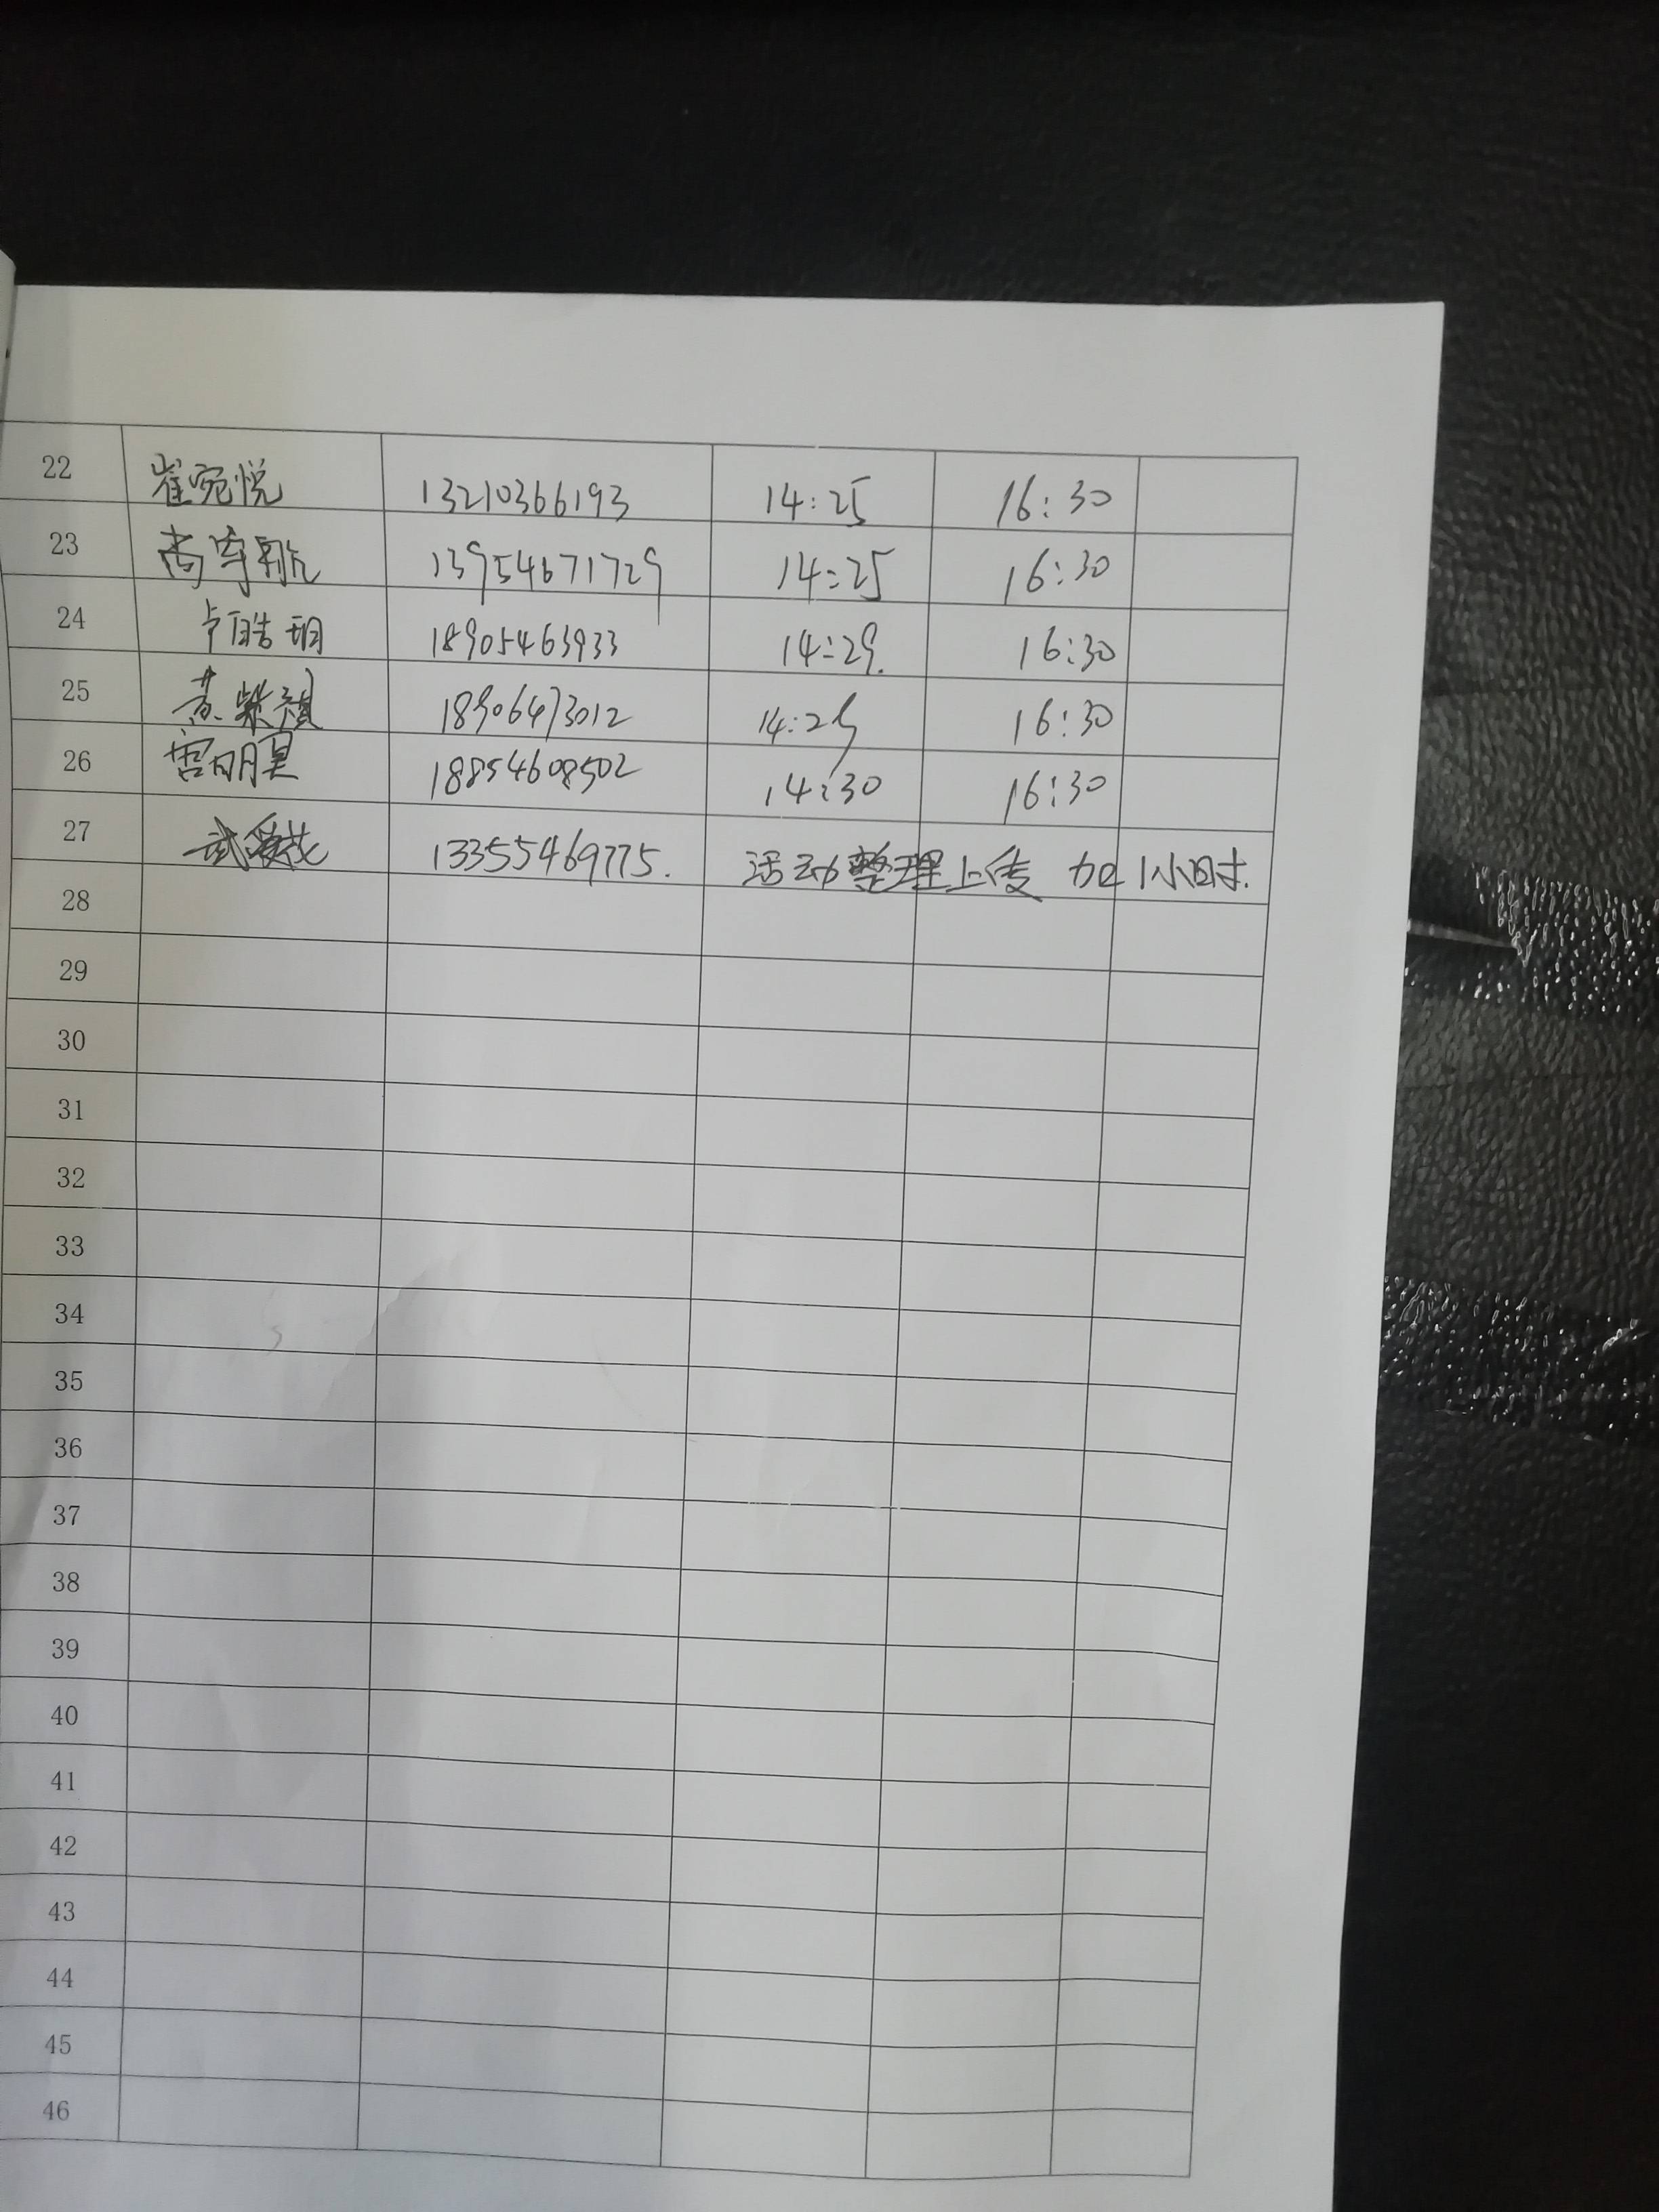 22 崔宛悦 13210366193 14:25 16:30
23 尚 航 13954671729 14:25 16:30
24 卢皓玥 18905463933 14:29. 16:30
25 黄紫颖 18906473012 14:29 16:30
26 宫明昊 18854608502 14:30 16:30
27 武爱花 13355469775. 活动整理上传 加1小时.
28
29
30
31
32
33
34
35
36
37
38
39
40
41
42
43
44
45
46